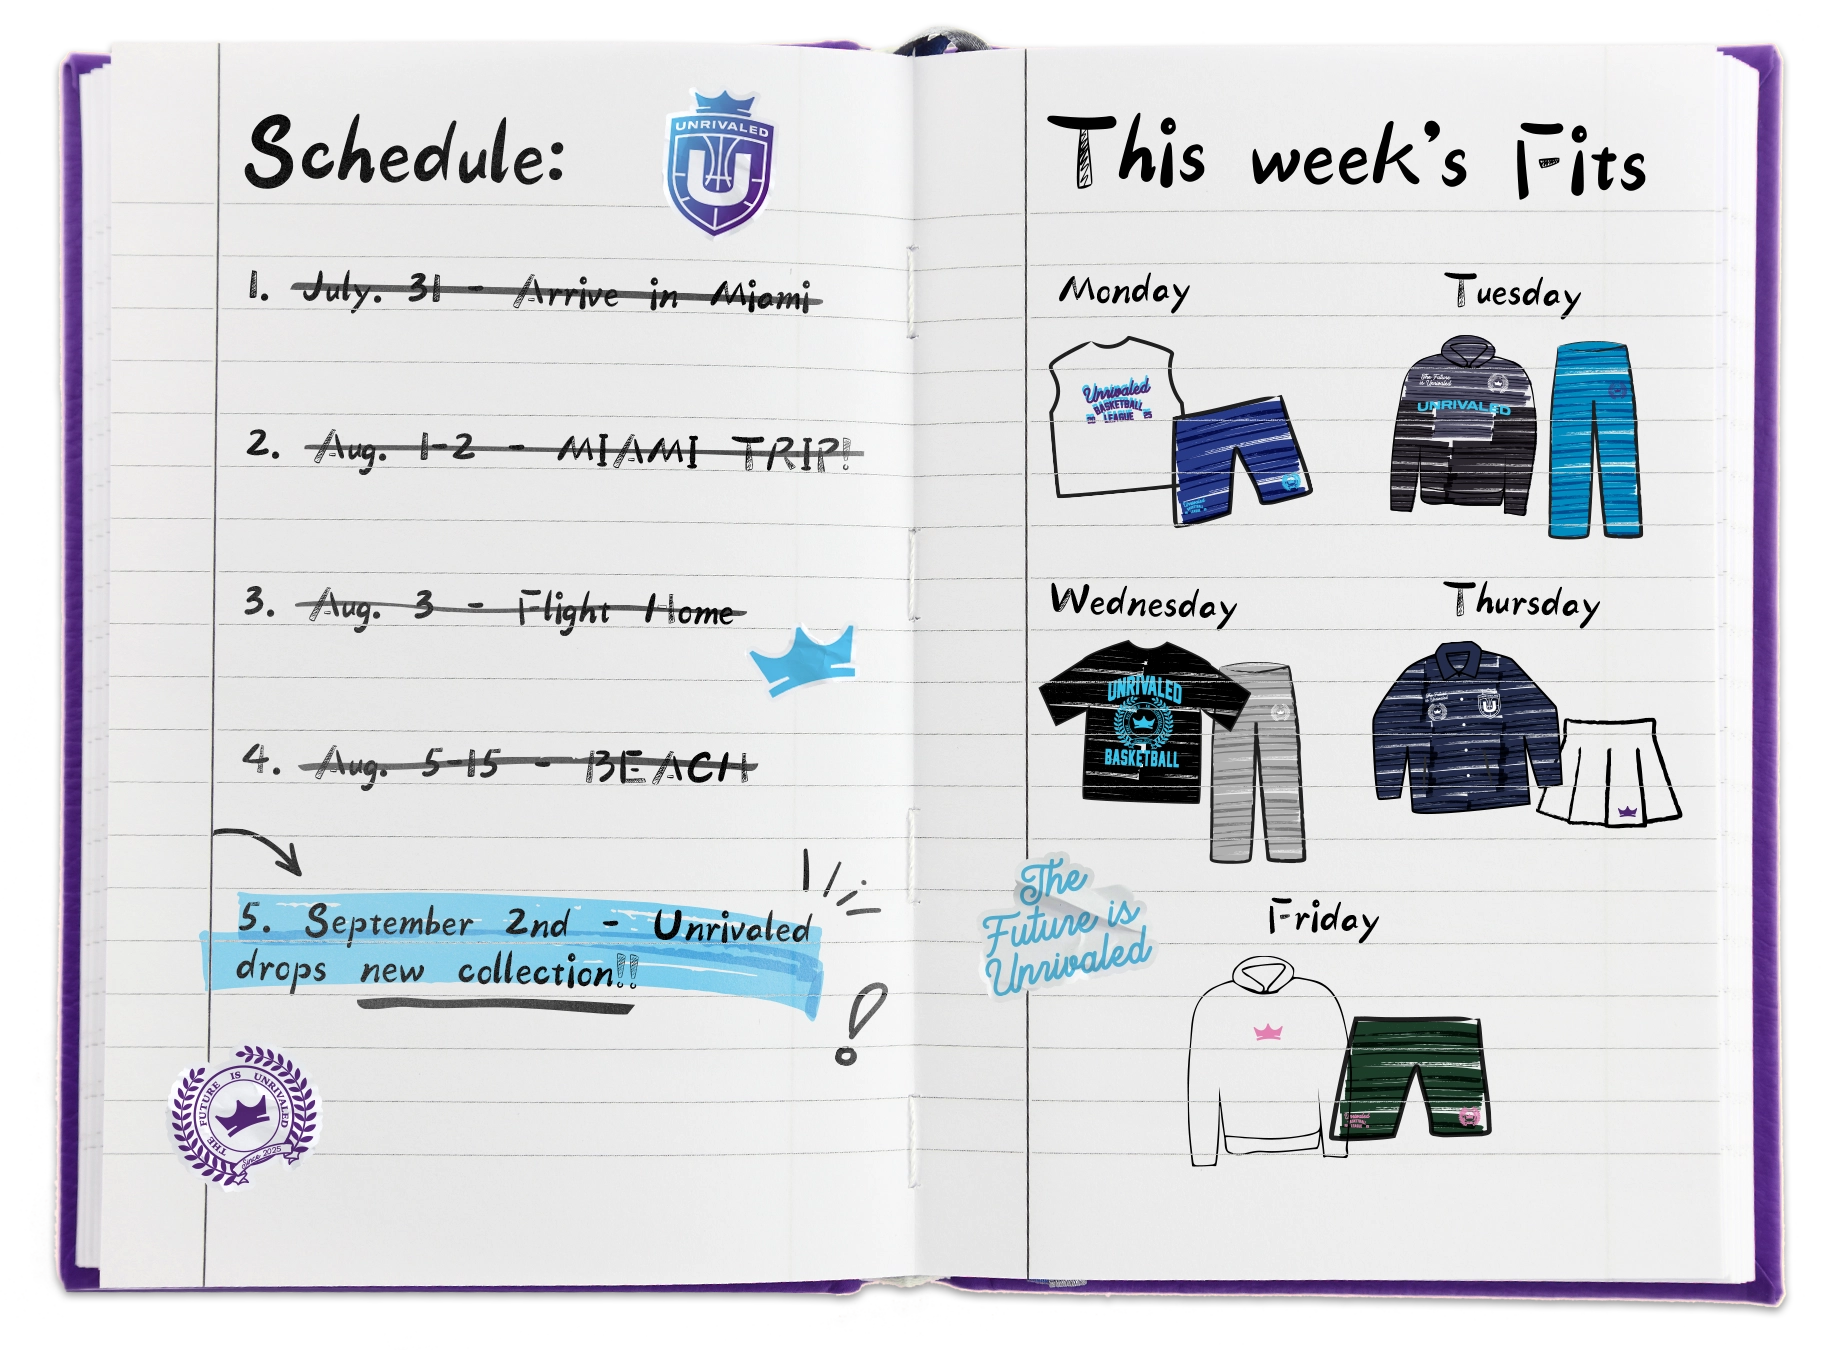 Schedule:
UNRIVALED
U
1. July. 31 - Arrive in Miami
2. Aug. 1-2 - MIAMI TRIP!
3. Aug. 3 - Flight Home
4. Aug. 5-15 - BEACH
5. September 2nd - Unrivaled
drops new collection!!
THE FUTURE IS UNRIVALED
Since 2025
This week's Fits
Monday
Unrivaled
BASKETBALL
LEAGUE
Tuesday
The Future
is Unrivaled
UNRIVALED
Wednesday
UNRIVALED
BASKETBALL
Thursday
U
The
Future is
Unrivaled
Friday